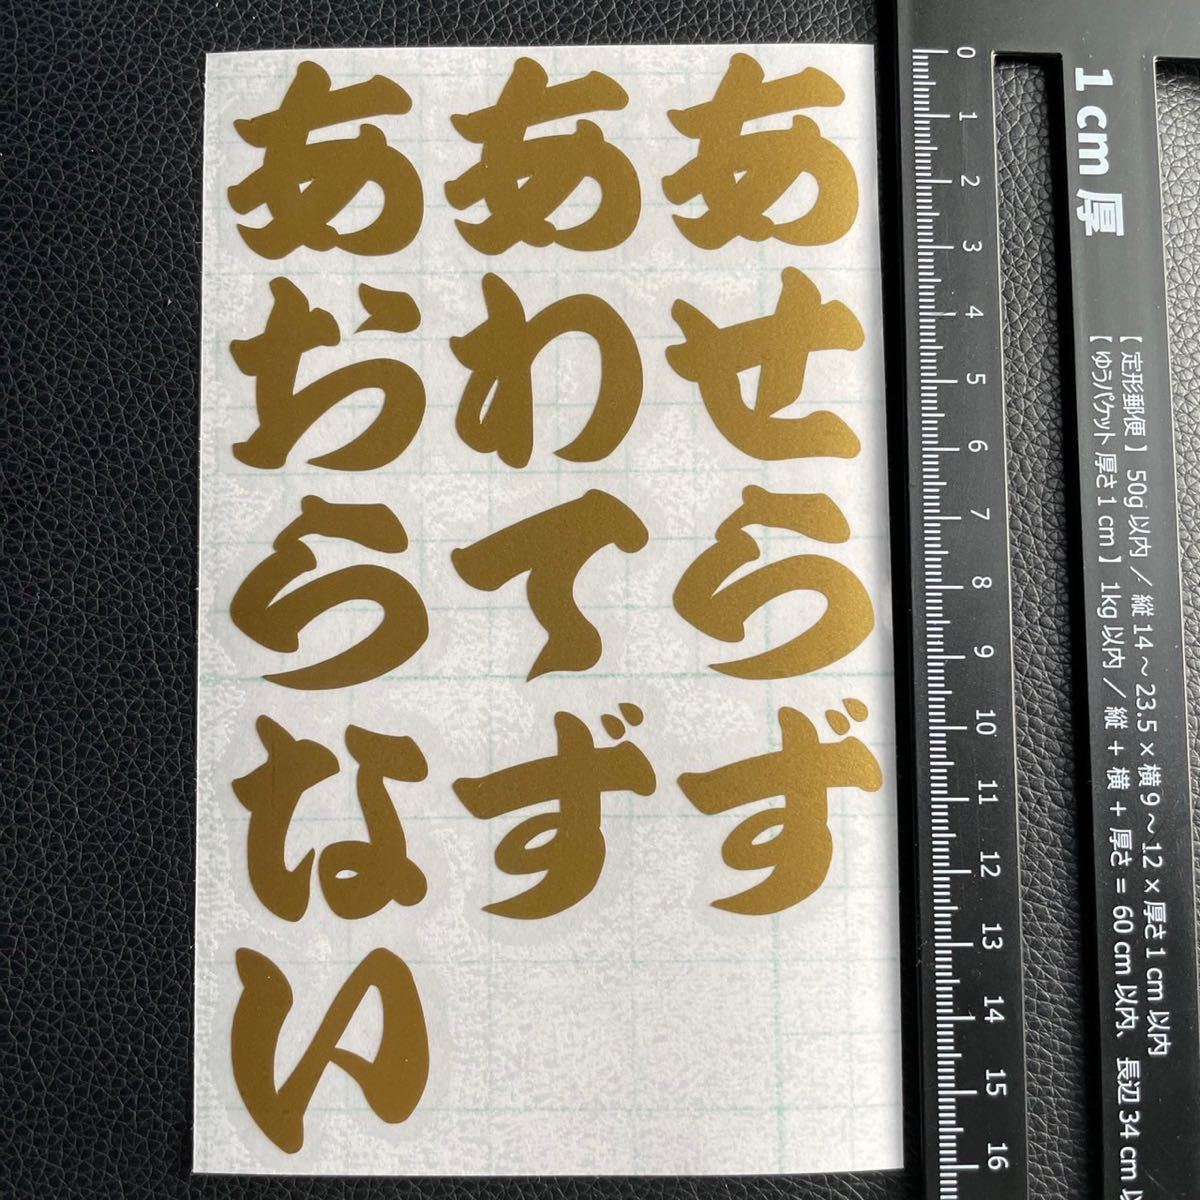 あせらず
あわてず
あおらない
0 1 2 3 4 5 6 7 8 9 10 11 12 13 14 15 16
1cm厚
【 定形郵便 】 50g 以内 ／ 縦 14～23.5 × 横 9～12 × 厚さ 1 cm 以内
【 ゆうパケット 厚さ1 cm 】 1kg 以内 ／ 縦 + 横 + 厚さ = 60 cm 以内、長辺 34 cm 以